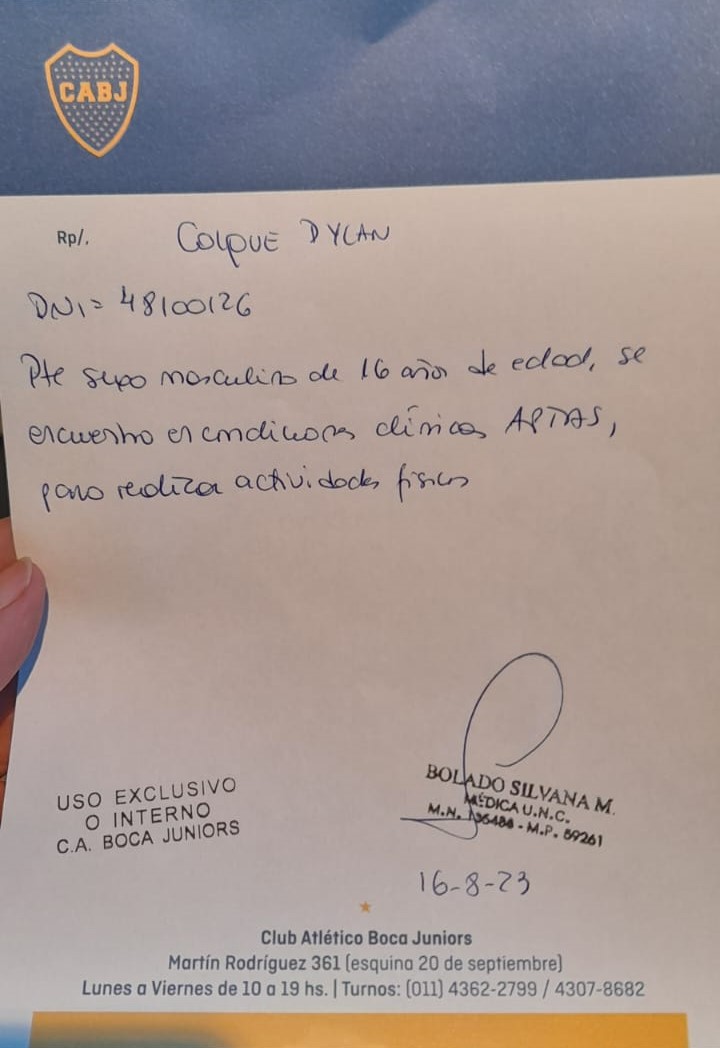 CABJ
Rp/. COLQUE DYLAN
DNI= 48100126
Pte sexo masculino de 16 años de edad, se
encuentra en condiciones clínicas APTAS,
para realizar actividades físicas
USO EXCLUSIVO
O INTERNO
C.A. BOCA JUNIORS
BOLADO SILVANA M.
MÉDICA U.N.C.
M.N. - M.P. 59261
16-8-23
Club Atlético Boca Juniors
Martín Rodríguez 361 (esquina 20 de septiembre)
Lunes a Viernes de 10 a 19 hs. | Turnos: (011) 4362-2799 / 4307-8682